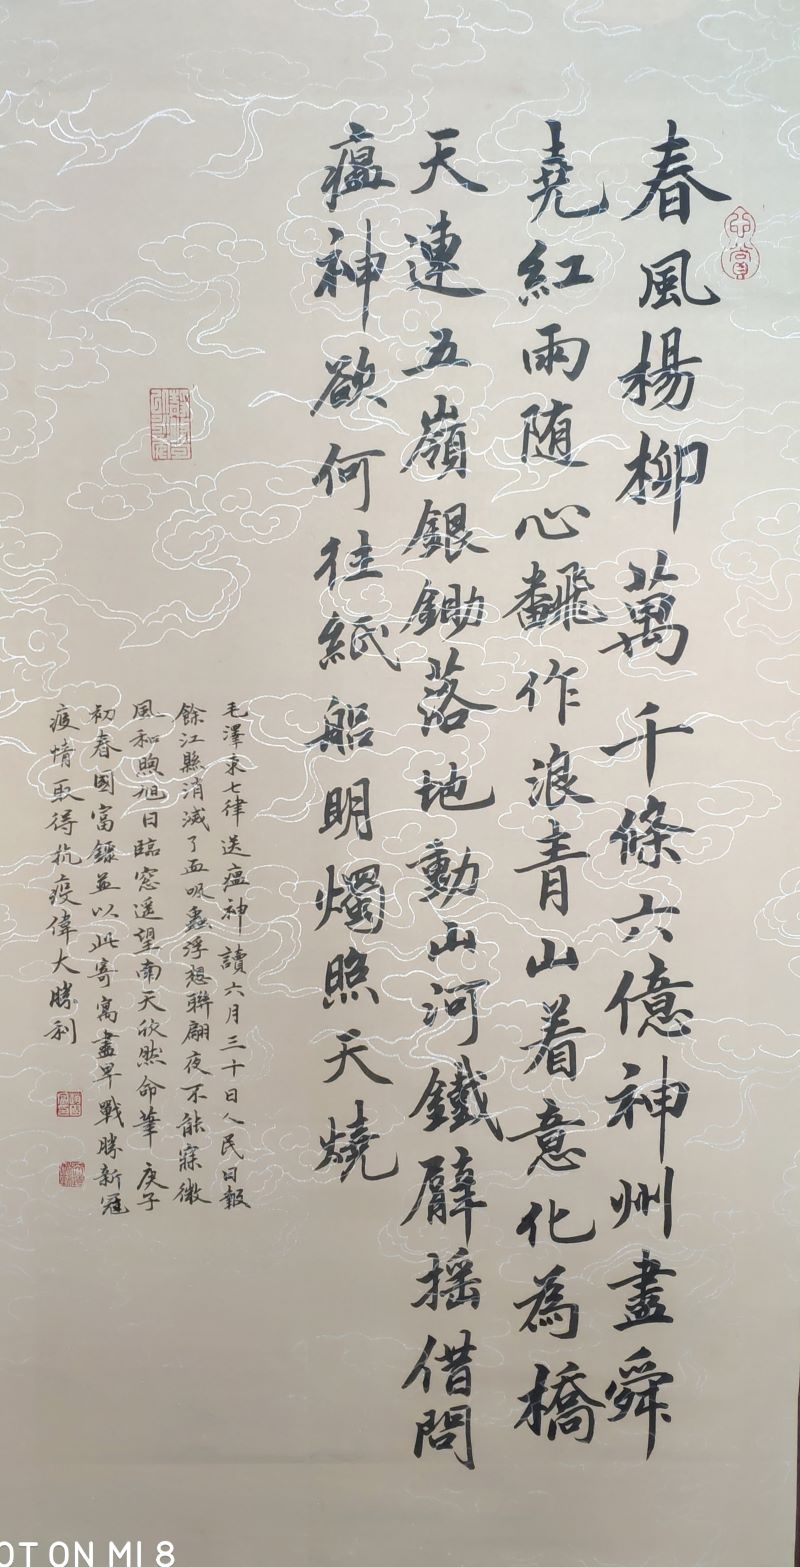 春風楊柳萬千條六億神州盡舜
堯紅雨随心飜作浪青山着意化為橋
天連五嶺銀鋤落地動山河鐵臂揺借問
瘟神欲何往紙船明燭照天燒
毛澤東七律送瘟神讀六月三十日人民日報
餘江縣消滅了血吸蟲浮想聯翩夜不能寐微
風和煦旭日臨窓遥望南天欣然命筆庚子
初春國富錄並以此寄寓盡早戰勝新冠
疫情取得抗疫偉大勝利
OT ON MI 8